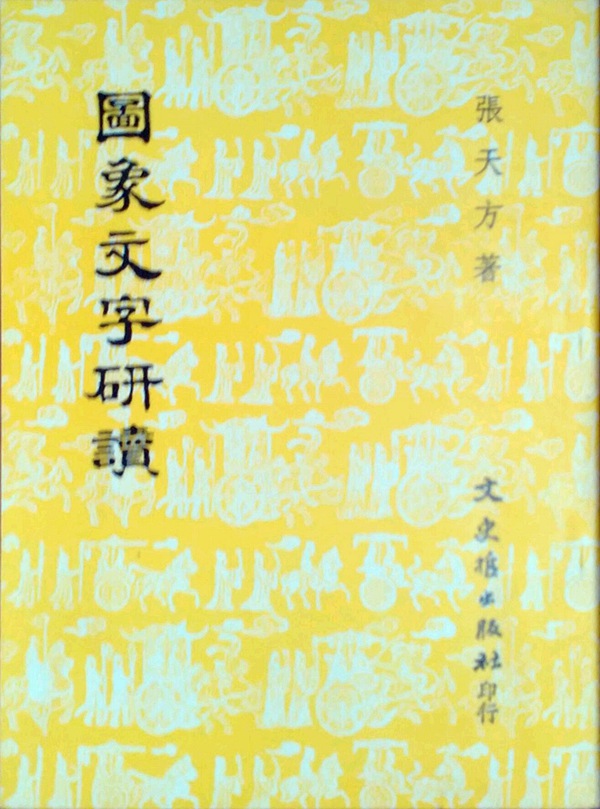 張天方著
文史哲出版社印行
圖象文字研讀